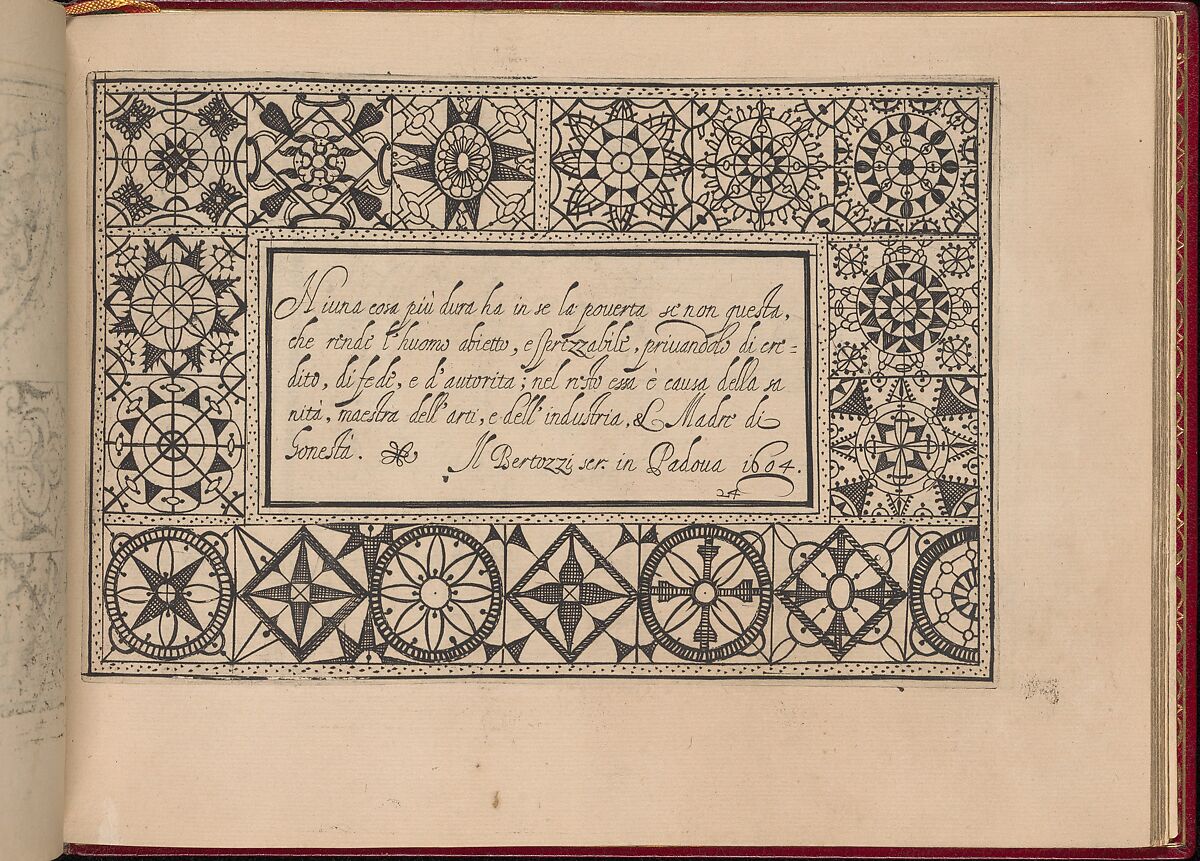 Niuna cosa più dura ha in se la pouerta se non questa,
che rende l'huomo abietto, e sprezzabile, priuandolo di cre=
dito, di fede, e d'autorita; nel rsto essa è causa della sa
nità, maestra dell'arti, e dell'industria, & Madre di
honestà.
Il Bertozzi scr. in Padoua 1604.
24